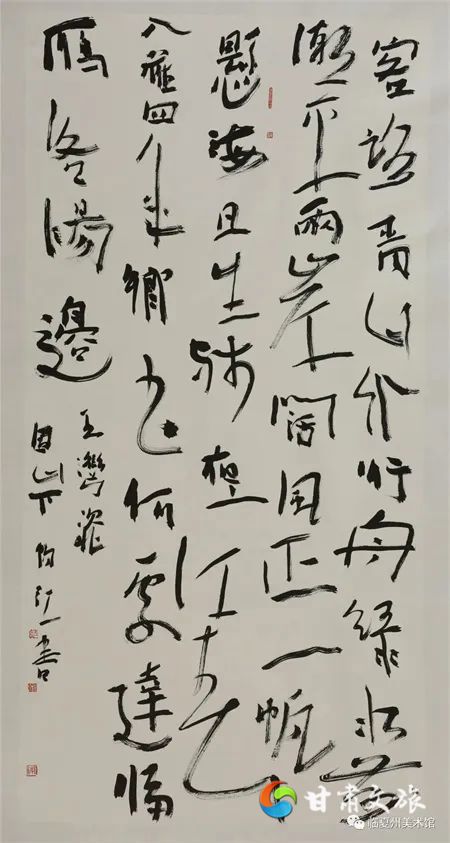 客路青山外行舟綠水前
潮平兩岸闊風正一帆
懸海日生殘夜江春
入舊年鄉書何處達歸
雁洛陽邊
王灣次北
固山下 書
甘肃文旅
临夏州美术馆